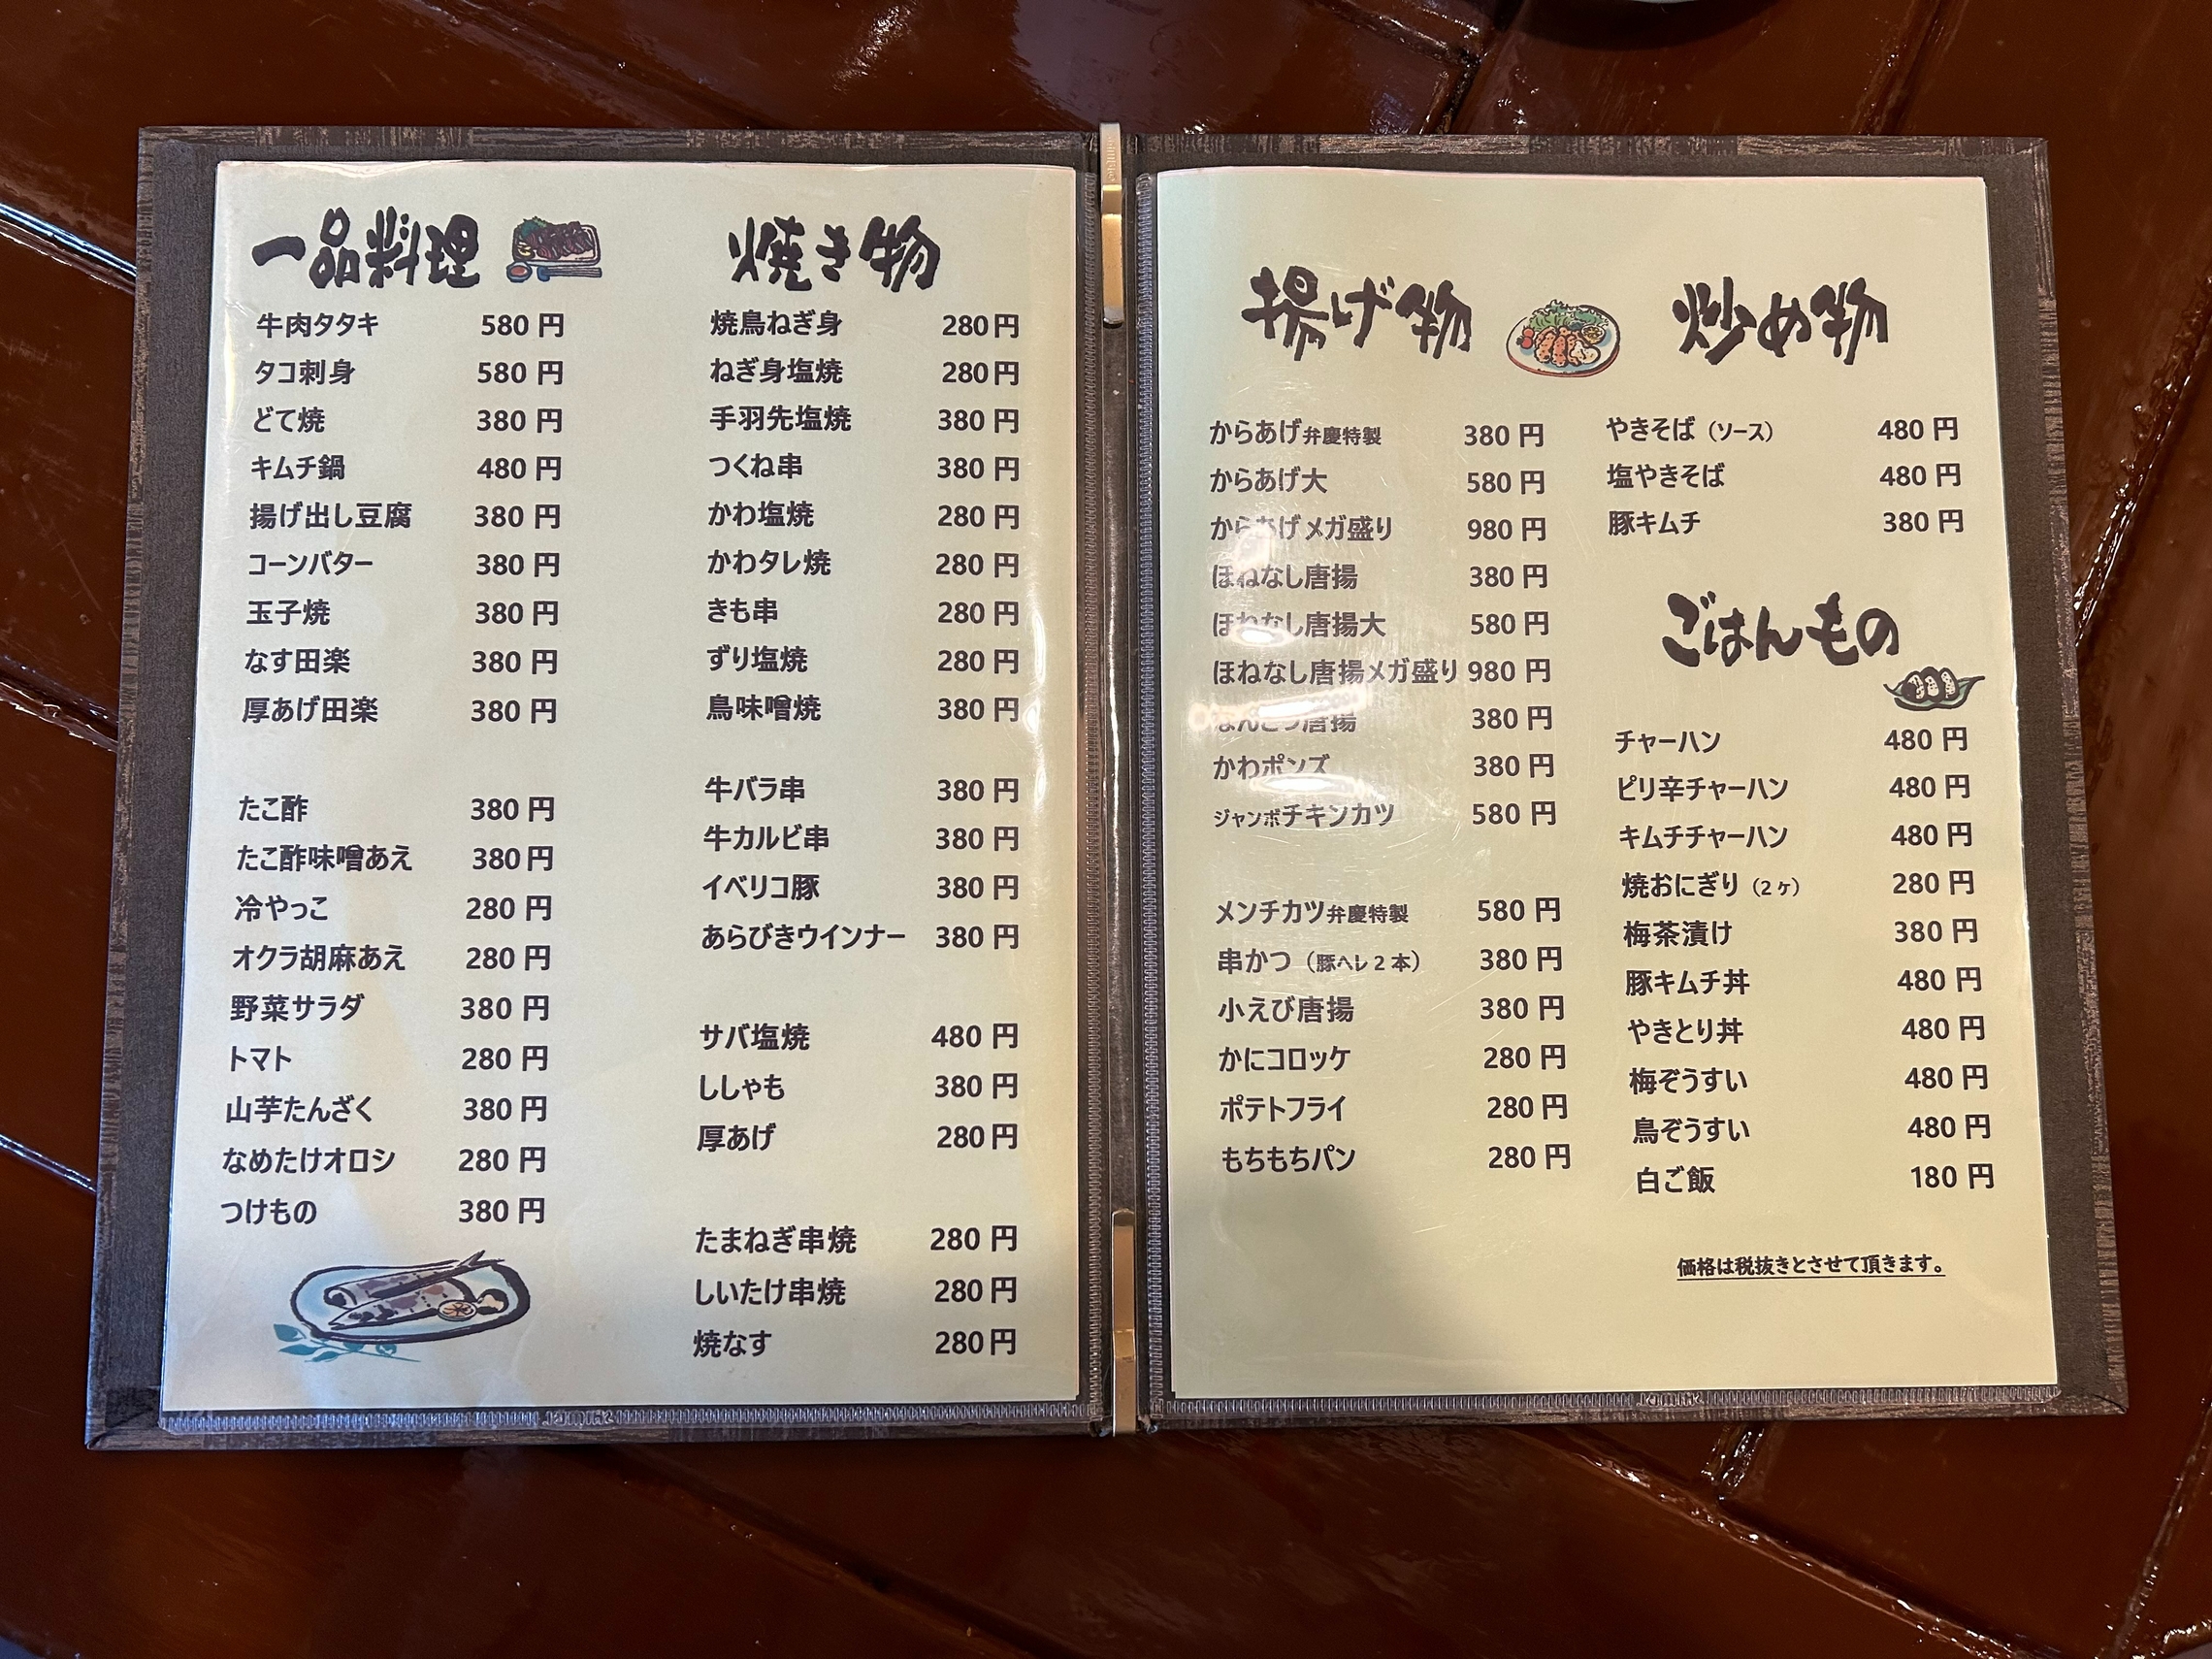 一品料理
牛肉タタキ 580 円
タコ刺身 580 円
どて焼 380 円
キムチ鍋 480 円
揚げ出し豆腐 380 円
コーンバター 380 円
玉子焼 380 円
なす田楽 380 円
厚あげ田楽 380 円
たこ酢 380 円
たこ酢味噌あえ 380 円
冷やっこ 280 円
オクラ胡麻あえ 280 円
野菜サラダ 380 円
トマト 280 円
山芋たんざく 380 円
なめたけオロシ 280 円
つけもの 380 円
焼き物
焼鳥ねぎ身 280 円
ねぎ身塩焼 280 円
手羽先塩焼 380 円
つくね串 380 円
かわ塩焼 280 円
かわタレ焼 280 円
きも串 280 円
ずり塩焼 280 円
鳥味噌焼 380 円
牛バラ串 380 円
牛カルビ串 380 円
イベリコ豚 380 円
あらびきウインナー 380 円
サバ塩焼 480 円
ししゃも 380 円
厚あげ 280 円
たまねぎ串焼 280 円
しいたけ串焼 280 円
焼なす 280 円
揚げ物
からあげ弁慶特製 380 円
からあげ大 580 円
からあげメガ盛り 980 円
ほねなし唐揚 380 円
ほねなし唐揚大 580 円
ほねなし唐揚メガ盛り 980 円
なんこつ唐揚 380 円
かわポンズ 380 円
ジャンボチキンカツ 580 円
メンチカツ弁慶特製 580 円
串かつ（豚ヘレ 2 本） 380 円
小えび唐揚 380 円
かにコロッケ 280 円
ポテトフライ 280 円
もちもちパン 280 円
炒め物
やきそば（ソース） 480 円
塩やきそば 480 円
豚キムチ 380 円
ごはんもの
チャーハン 480 円
ピリ辛チャーハン 480 円
キムチチャーハン 480 円
焼おにぎり（2 ヶ） 280 円
梅茶漬け 380 円
豚キムチ丼 480 円
やきとり丼 480 円
梅ぞうすい 480 円
鳥ぞうすい 480 円
白ご飯 180 円
価格は税抜きとさせて頂きます。